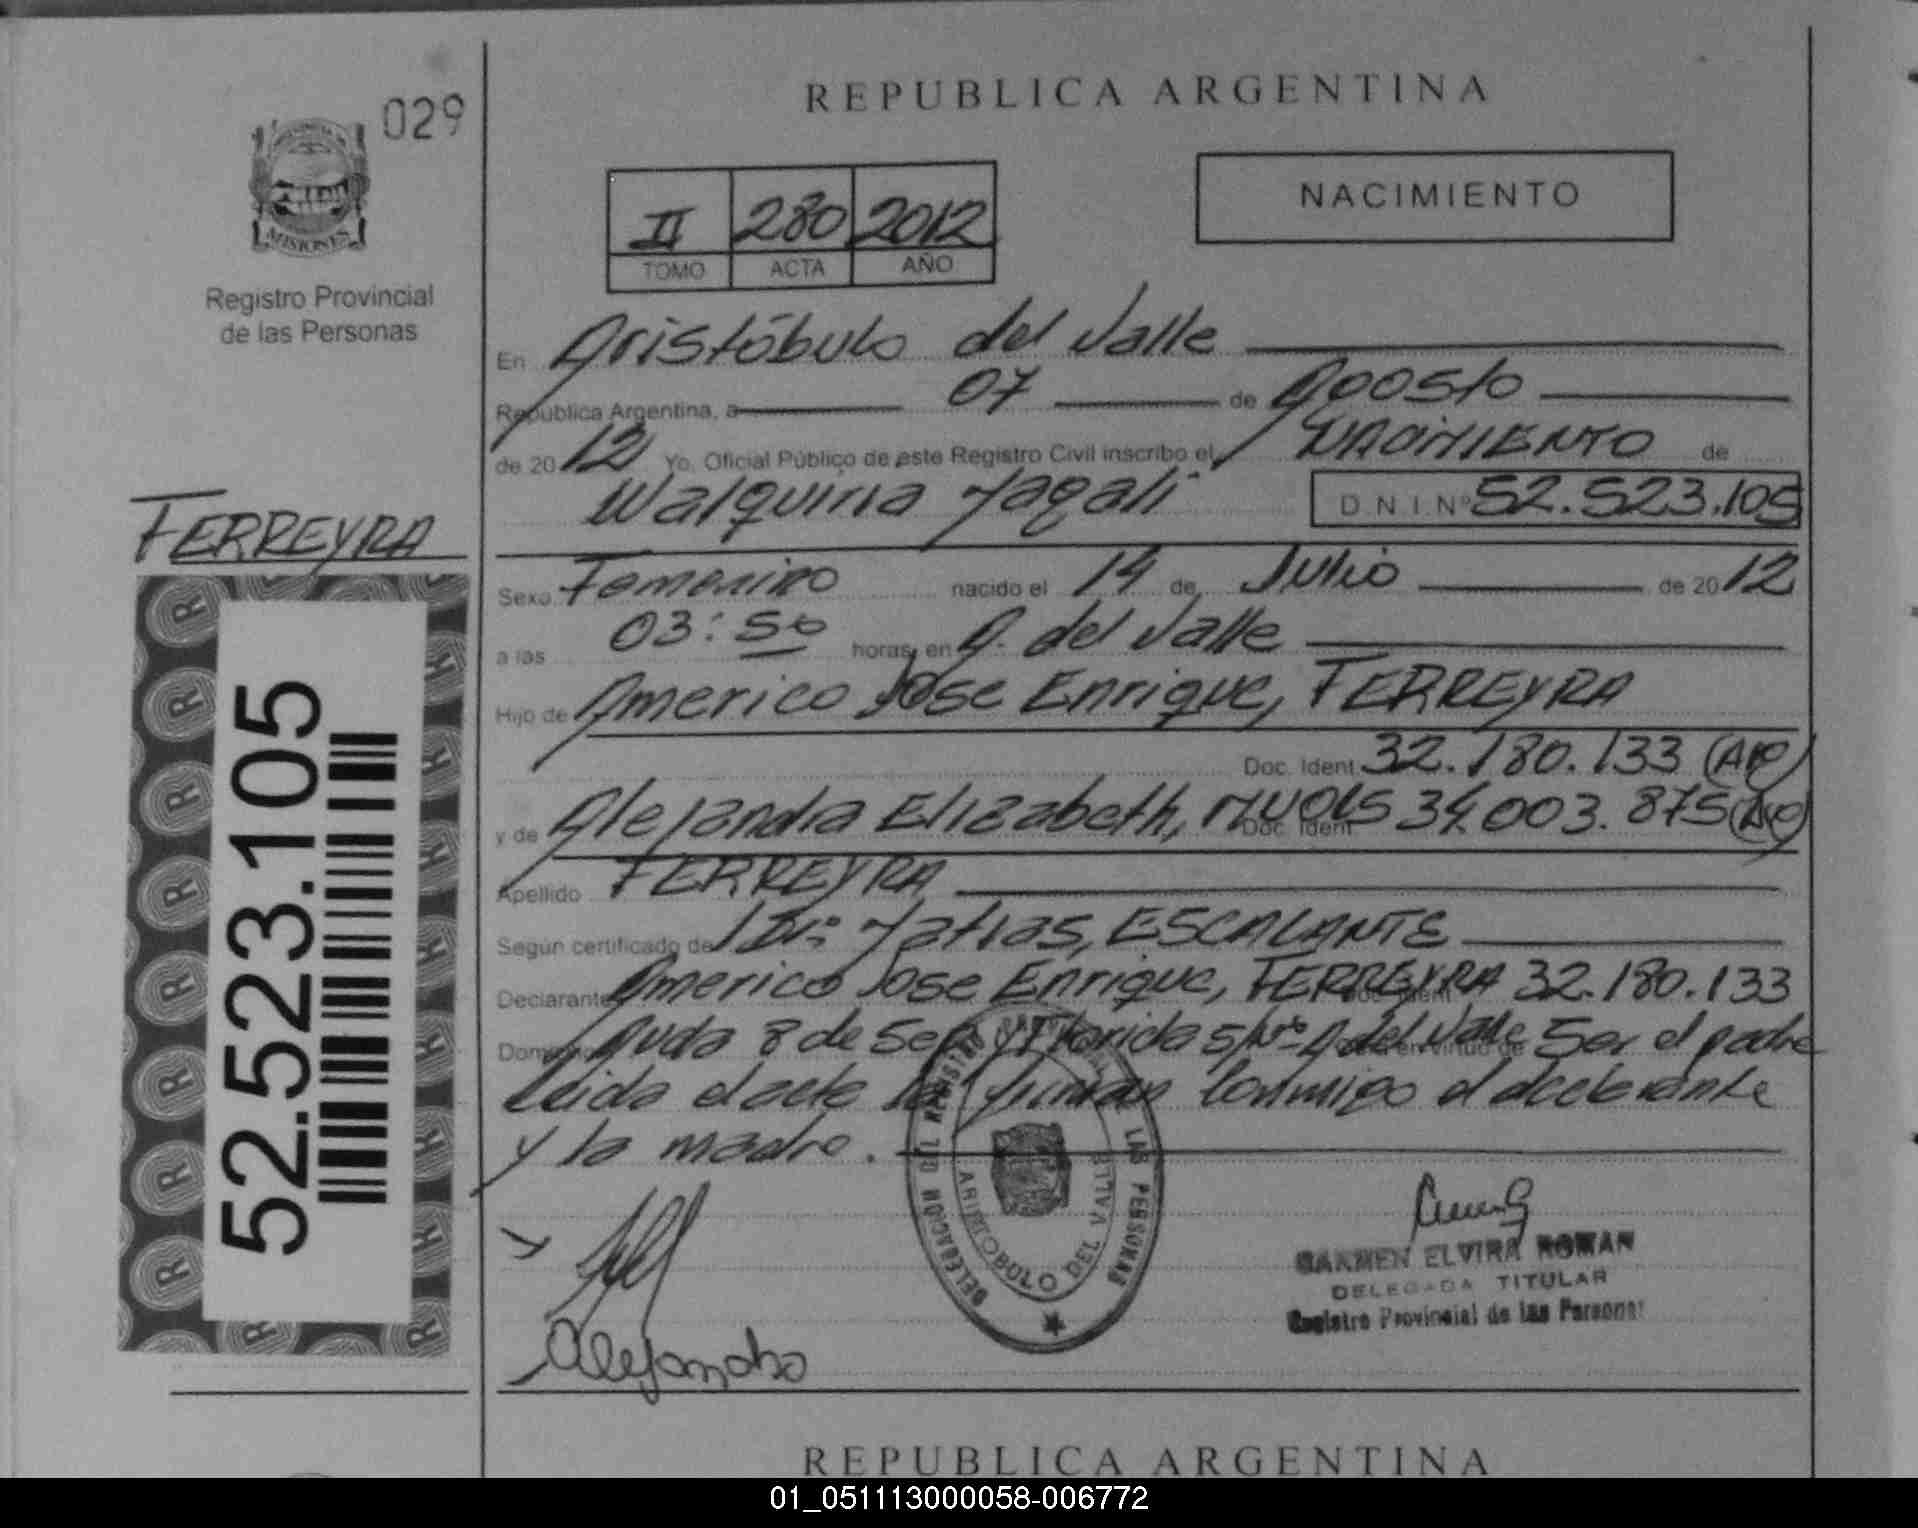 029
MISIONES
Registro Provincial
de las Personas
FERREYRA
52.523.105
REPUBLICA ARGENTINA
II 280 2012
TOMO ACTA AÑO
NACIMIENTO
En Aristóbulo del Valle
República Argentina, a 07 de Agosto
de 2012 Yo, Oficial Público de este Registro Civil inscribo el NACIMIENTO de
Walquiria D.N.I.Nº 52.523.105
Sexo Femenino nacido el 14 de Julio de 2012
a las 03:50 horas, en A. del Valle
Hijo de Americo Jose Enrique, FERREYRA
Doc. Ident. 32.180.133
y de Alejandra Elizabeth, Doc. Ident. 34.003.875
Apellido FERREYRA
Según certificado de Dr: Matias, ESCALANTE
Declarante Americo Jose Enrique, FERREYRA Doc. Ident 32.180.133
Domicilio Avda 8 de Sep y Florida s/Nº A. del Valle en virtud de Ser el padre
Leida el acta la firman conmigo el declarante
y la madre.
DELEGACION DEL REGISTRO PROVINCIAL DE LAS PERSONAS
ARISTOBULO DEL VALLE
CARMEN ELVIRA ROMAN
DELEGADA TITULAR
Registro Provincial de las Personas
Alejandra
REPUBLICA ARGENTINA
01_051113000058-006772